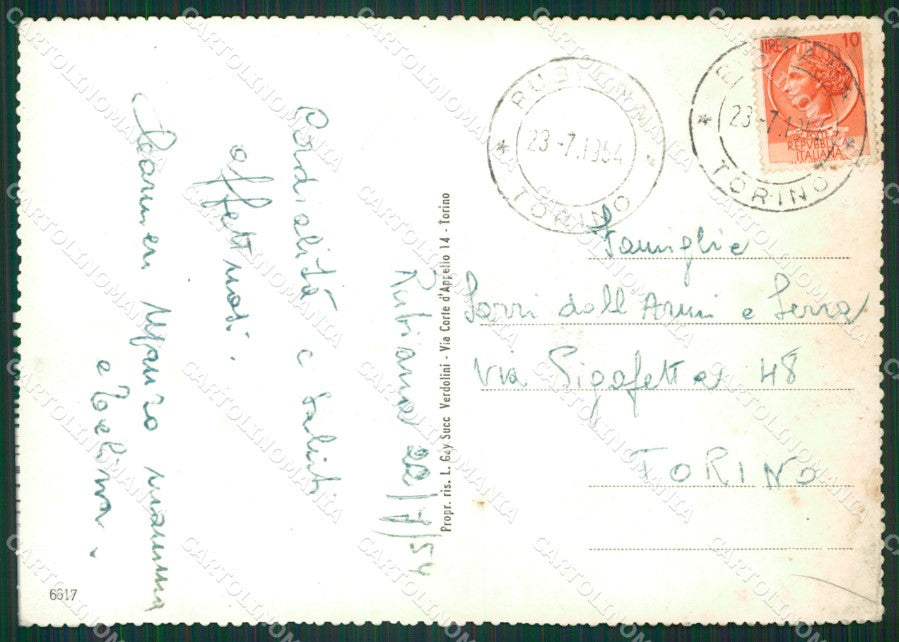 Rubiana 22/7/54
Cordialità e saluti
affettuosi.
Carmen Mauro mamma
e
Propr. ris. L. Gay Succ Verdolini - Via Corte d'Appello 14 - Torino
6617
RUBIANA
23-7.1954
TORINO
RUBIANA
23-7.1954
TORINO
LIRE 10
REPUBBLICA
ITALIANA
Famiglie
Sorri dall'Armi e Serra
Via Pigafetta 48
TORINO
CARTOLINOMANIA